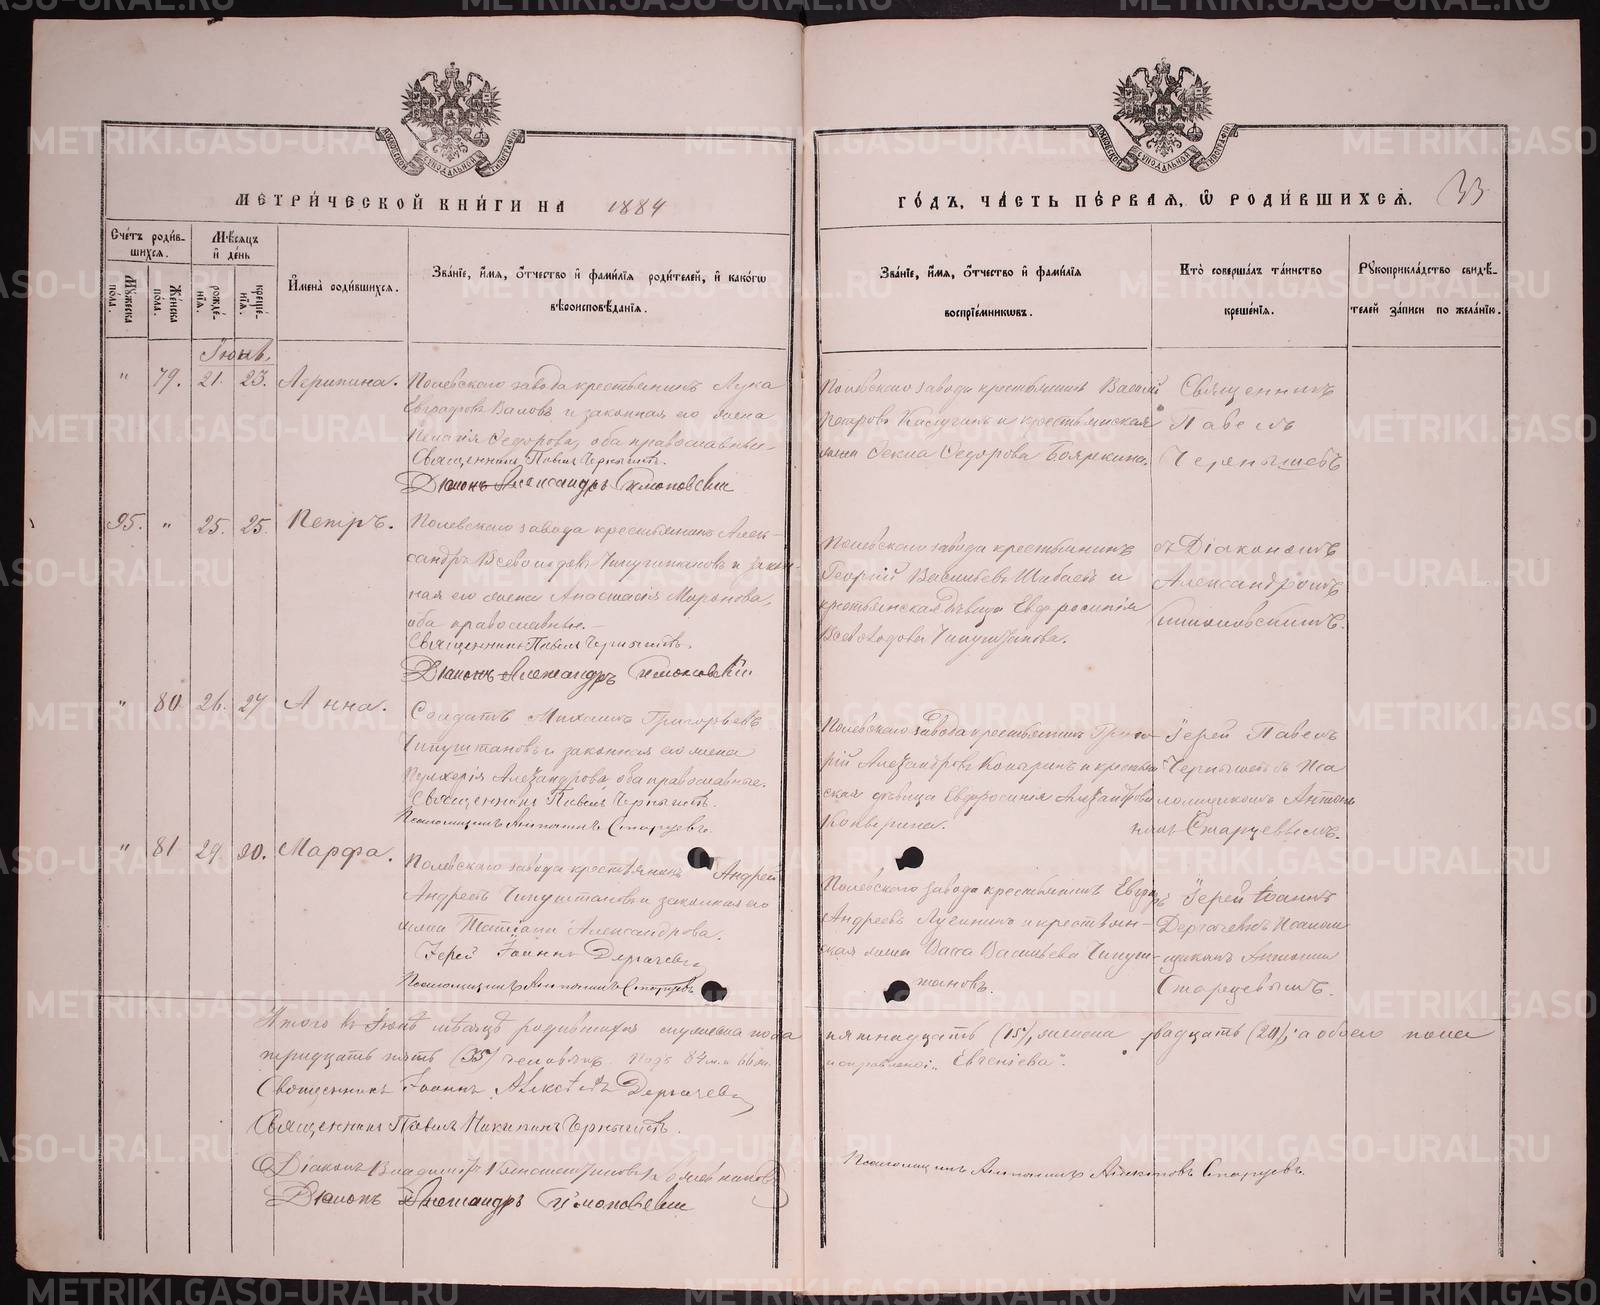 МЕТРИ́ЧЕСКОЙ КНИ́ГИ НА 1884
ГО́ДЪ, ЧА́СТЬ ПЕ́РВАЯ, Ѡ҆ РОДИ́ВШИХСЯ. 33
Сче́тъ роди́в-
шихся.
Мꙋжеска по́ла.
Же́нска по́ла.
Мѣ́сяцъ и҆ де́нь
рожде́-
нїя.
креще́-
нїя.
И҆мена̀ роди́вшихся.
Зва́нїе, и҆́мя, ѻ҆́тчество и҆ фами́лїя роди́телей, и҆ како́гѡ
вѣроисповѣ́данїя.
Зва́нїе, и҆́мя, ѻ҆́тчество и҆ фами́лїя
воспрїе́мникѡвъ.
Кто̀ соверша́лъ та́инство
креще́нїя.
Рꙋкоприкла́дство свидѣ́-
телей за́писи по жела́нїю.
Іюнь.
" 79. 21. 23. Агрипина.
Полевскаго завода крестьянинъ Лука
Евграфовъ Валовъ и законная его жена
Пелагія Ѳедорова, оба православные.
Священникъ Павелъ Чернышевъ.
Діаконъ Александръ
Полевскаго завода крестьянинъ Василій
Петровъ Калугинъ и крестьянская
жена Ѳекла Ѳедорова Бояркина.
Священникъ
Павелъ
Чернышевъ
95. " 25. 25. Петръ.
Полевскаго завода крестьянинъ Алек-
сандръ Всеволодовъ Чипуштановъ и закон-
ная его жена Анастасія Миронова,
оба православные.
Священникъ Павелъ Чернышевъ.
Діаконъ Александръ
Полевскаго завода крестьянинъ
Георгій Васильевъ Шабаевъ и
крестьянская дѣвица Евфросинія
Всеволодова Чипуштанова.
съ Діакономъ
Александромъ
" 80 26. 27. Анна.
Солдатъ Михаилъ Григорьевъ
Чипуштановъ и законная его жена
Пулхерія Александрова, оба православные.
Священникъ Павелъ Чернышевъ.
Псаломщикъ Антонинъ Старцевъ.
Полевскаго завода крестьянинъ Григо-
рій Александровъ Копыринъ и крестьян-
ская дѣвица Евфросинія Александрова
Копырина.
Іерей Павелъ
Чернышевъ съ Пса-
ломщикомъ Антони-
номъ Старцевымъ.
" 81 29. 30. Марфа.
Полевскаго завода крестьянинъ Андрей
Андреевъ Чипуштановъ и законная его
жена Татіана Александрова.
Іерей Іоаннъ Дергачевъ
Псаломщикъ Антонинъ Старцевъ
Полевскаго завода крестьянинъ
Андреевъ Лузинъ и крестьян-
ская жена Васса Васильева Чипуш-
танова.
Іерей Іоаннъ
Дергачевъ Псалом-
щикомъ Антонин
Старцевымъ.
Итого въ Іюнѣ мѣсяцѣ родившихся мужеска пола
пятнадцать (15), женска двадцать (20), а обоего пола
тридцать пять (35) человѣкъ.
исправлено: „Евгеніева".
Священникъ Іоаннъ Алексѣевъ Дергачевъ
Священникъ Павелъ Никитинъ Чернышевъ.
Діаконъ Владиміръ Константиновъ
Діаконъ Александръ
Псаломщикъ Антонинъ Старцевъ.
METRIKI.GASO-URAL.RU